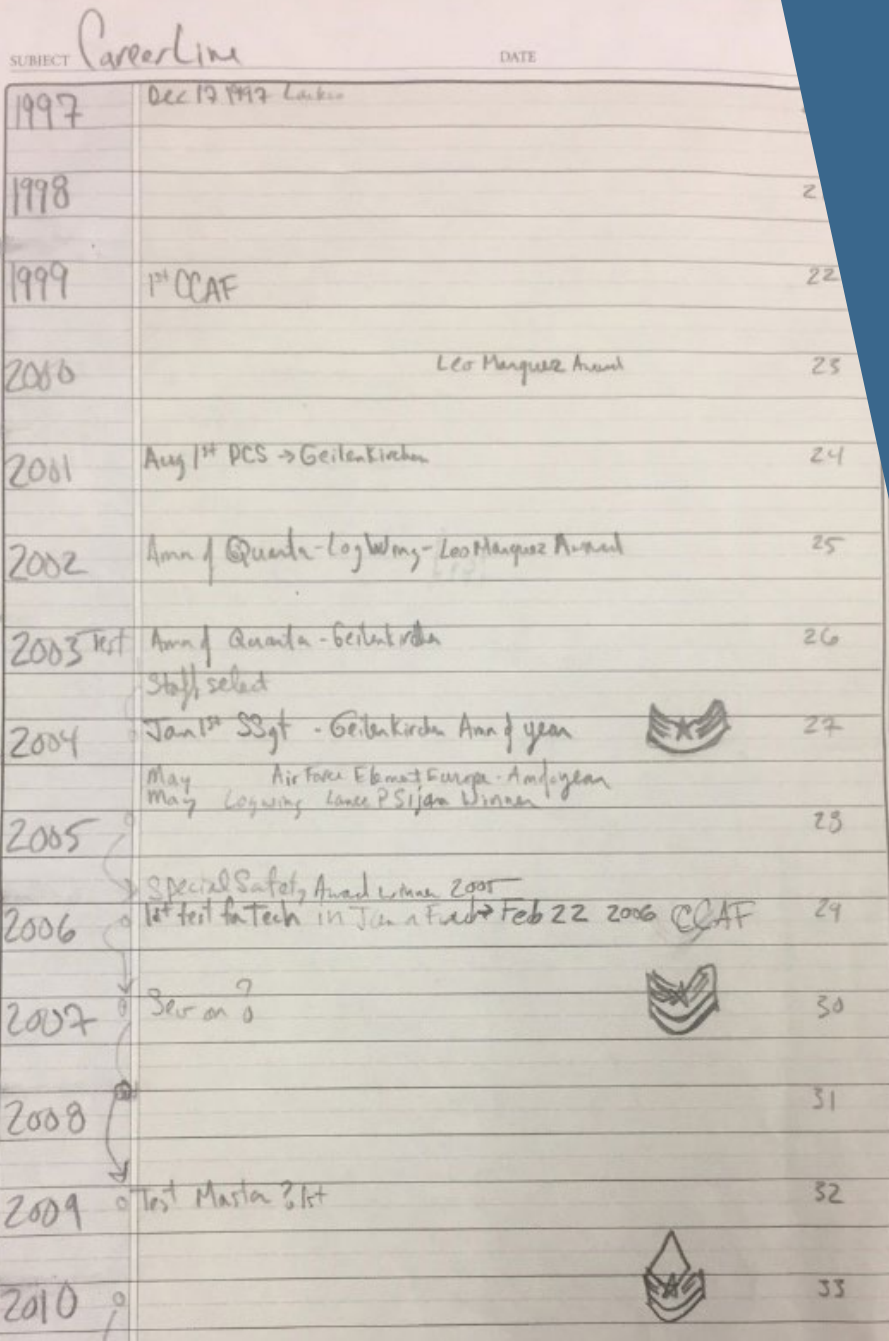 SUBJECT Career Line DATE
1997 Dec 17 1997
1998 2
1999 1st CCAF 22
2000 Leo Marquez Award 23
2001 Aug 1st PCS → Geilenkirchen 24
2002 Amn of Quarta - Log Wing - Leo Marquez Award 25
2003 Test Amn of Quarta - Geilenkirchen 26
Staff select
2004 Jan 1st SSgt - Geilenkirchen Amn of year 27
May Air Force Element Europe - Amn of year
May Logwing Lance P Sijan Winner
2005 28
Special Safety Award winner 2005
2006 1st test for Tech in Jan → Feb 22 2006 CCAF 29
2007 on ? 30
2008 31
2009 Test Master ? 1st 32
2010 33